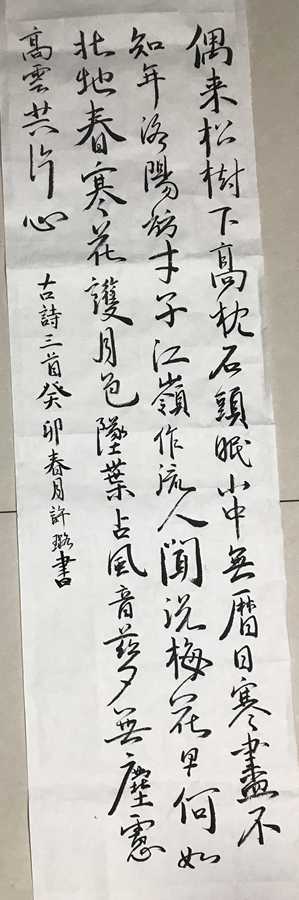 偶来松樹下高枕石頭眠山中無曆日寒盡不
知年洛陽訪才子江嶺作流人聞説梅花早何如
北地春寒花護月色墜葉占風音茲夕無塵慮
高雲共片心
古詩三首癸卯春月許璐書